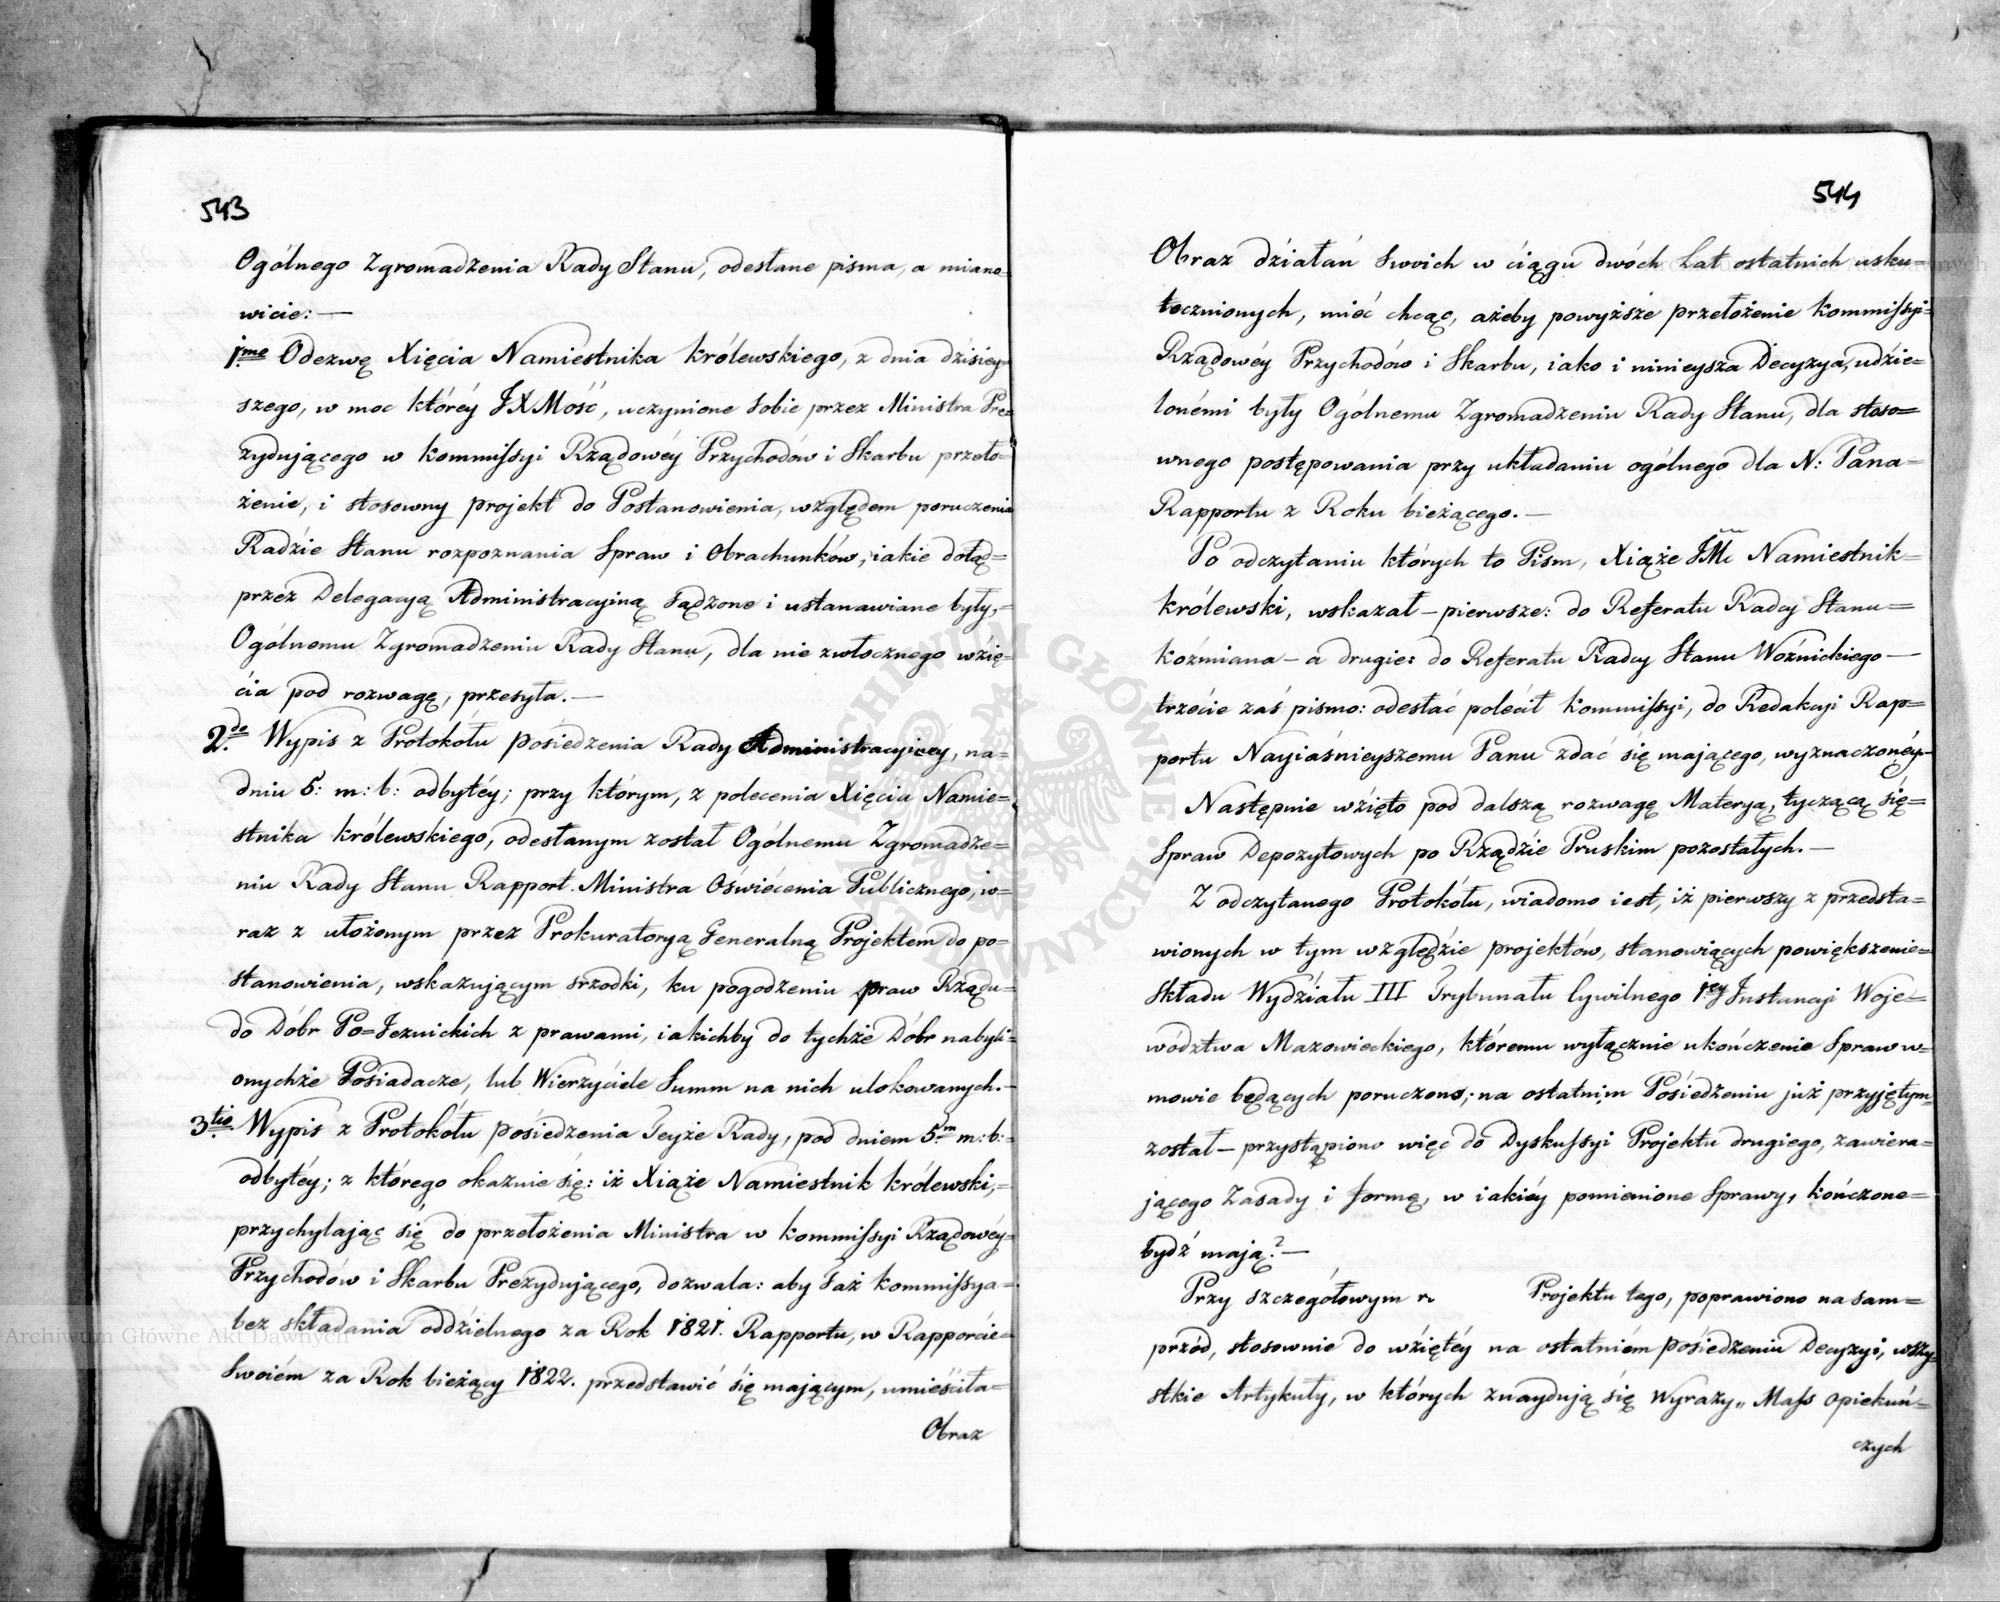 543
Ogólnego Zgromadzenia Rady Stanu, odesłane pisma, a miano=
wicie: —
1.me Odezwę Xięcia Namiestnika królewskiego, z dnia dzisiey=
szego, w moc któréy JXMość, uczynione sobie przez Ministra Pre=
zydującego w kommissyi Rządowéy Przychodów i Skarbu przeło=
żenie, i stosowny projekt do Postanowienia, względem poruczenia
Radzie Stanu rozpoznania Spraw i Obrachunków, iakie dotąd=
przez Delegacyą Administracyiną sądzone i ustanawiane były,=
Ogólnemu Zgromadzeniu Rady Stanu, dla nie zwłocznego wzię=
cia pod rozwagę, przesyła. —
2.do Wypis z Protokółu posiedzenia Rady Administracyinéy, na=
dniu 5: m: b: odbytéy; przy którym, z polecenia Xięcia Namie=
stnika królewskiego, odesłanym został Ogólnemu Zgromadze=
niu Rady Stanu Rapport Ministra Oświécenia Publicznego, w=
raz z ułożonym przez Prokuratoryą Generalną Projektem do po=
stanowienia, wskazującym srzodki, ku pogodzeniu praw Rządu=
do Dóbr Po=Jezuickich z prawami, iakichby do tychże Dóbr nabyli=
onychże Posiadacze, lub Wierzyciele Summ na nich ulokowanych.—
3.tio Wypis z Protokółu posiedzenia Teyże Rady, pod dniem 5.m m: b:=
odbytéy; z którego okazuie się: iż Xiąże Namiestnik królewski,=
przychylając się do przełożenia Ministra w kommissyi Rządowéy=
Przychodów i Skarbu Prezydującego, dozwala: aby Taż kommissya=
bez składania oddzielnego za Rok 1821. Rapportu, w Rapporcie=
Swoiém za Rok bieżący 1822. przedstawić się mającym, umieściła=
Obraz
544
Obraz działań Swoich w ciągu dwóch Lat ostatnich usku=
tecznionych, mieć chcąc, ażeby powyższe przełożenie kommissyi=
Rządowéy Przychodów i Skarbu, iako i ninieysza Decyzya, udzie=
lonémi były Ogólnemu Zgromadzeniu Rady Stanu, dla stoso=
wnego postępowania przy układaniu ogólnego dla N: Pana=
Rapportu z Roku bieżącego. —
Po odczytaniu których to Pism, Xiąże JMć Namiestnik=
królewski, wskazał — pierwsze: do Referatu Radcy Stanu=
koźmiana — a drugie: do Referatu Radcy Stanu Woźnickiego —
trzécie zaś pismo: odesłać polécił kommissyi, do Redakcyi Rap=
portu Nayiaśnieyszemu Panu zdać się mającego, wyznaczonéy.—
Następnie wzięto pod dalszą rozwagę Materyą, tyczącą się=
Spraw Depozytowych po Rządzie Pruskim pozostałych. —
Z odczytanego Protokółu, wiadomo iest, iż pierwszy z przedsta=
wionych w tym względzie projektów, stanowiących powiększenie=
Składu Wydziału III Trybunału Cywilnego 1.éy Instancyi Woje=
wództwa Mazowieckiego, któremu wyłącznie ukończenie Spraw w=
mowie będących poruczono; na ostatnim Posiedzeniu już przyjętym=
został — przystąpiono więc do Dyskussyi Projektu drugiego, zawiera=
jącego Zasady i formę, w iakiéy pomienione Sprawy, kończone=
bydź mają? —
Przy szczegółowym Projektu tego, poprawiono na sam=
przód, stosownie do wziętéy na ostatniém posiedzeniu Decyzyi, wszy=
stkie Artykuły, w których znaydują się Wyrazy „ Mass opiekuń=
czych